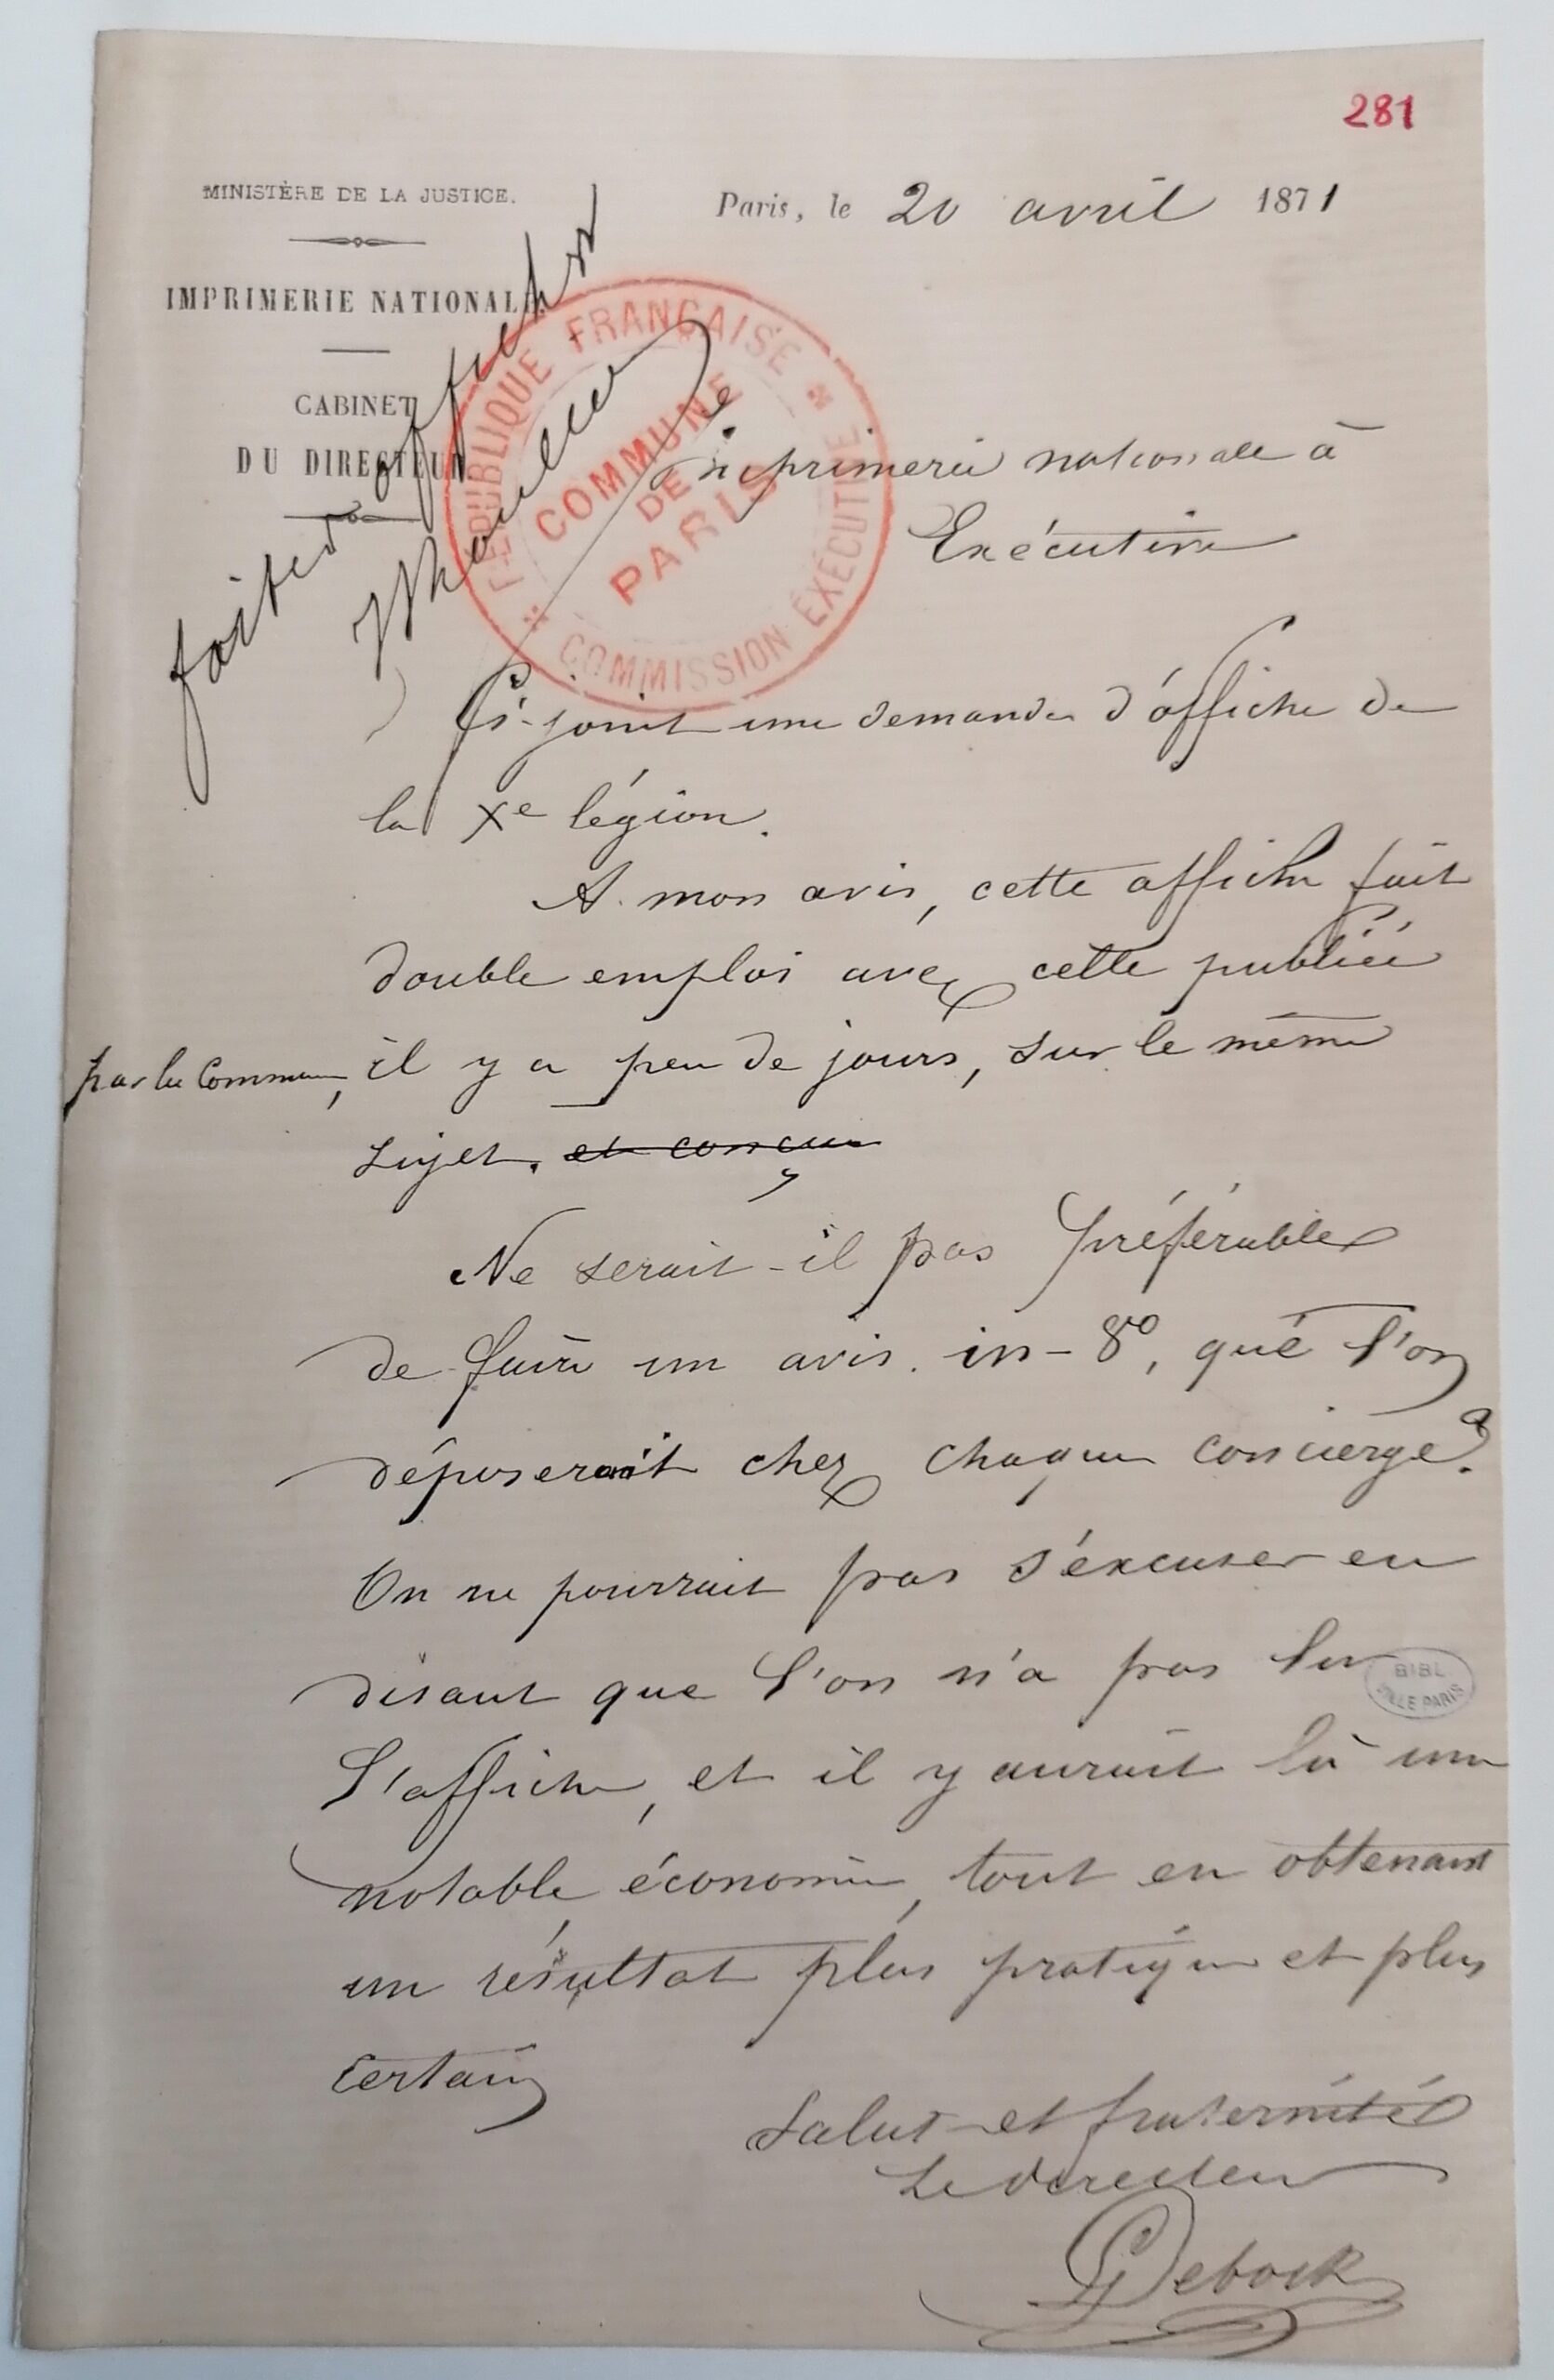 281
MINISTÈRE DE LA JUSTICE.
Paris, le 20 avril 1871
IMPRIMERIE NATIONALE
CABINET
DU DIRECTEUR
faites afficher
RÉPUBLIQUE FRANÇAISE
COMMUNE
DE
PARIS
COMMISSION EXÉCUTIVE
imprimerie nationale à
Exécutive
Ci-joint une demande d'affiche de
la Xe légion.
A mon avis, cette affiche fait
double emploi avec celle publiée
par la Commune, il y a peu de jours, sur le même
sujet. et conçue
Ne serait-il pas préférable
de faire un avis in-8º, que l'on
déposerait chez chaque concierge?
On ne pourrait pas s'excuser en
disant que l'on n'a pas lu
BIBL
VILLE PARIS
l'affiche, et il y aurait là une
notable économie, tout en obtenant
un résultat plus pratique et plus
certain
Salut et fraternité
Le directeur
Debock